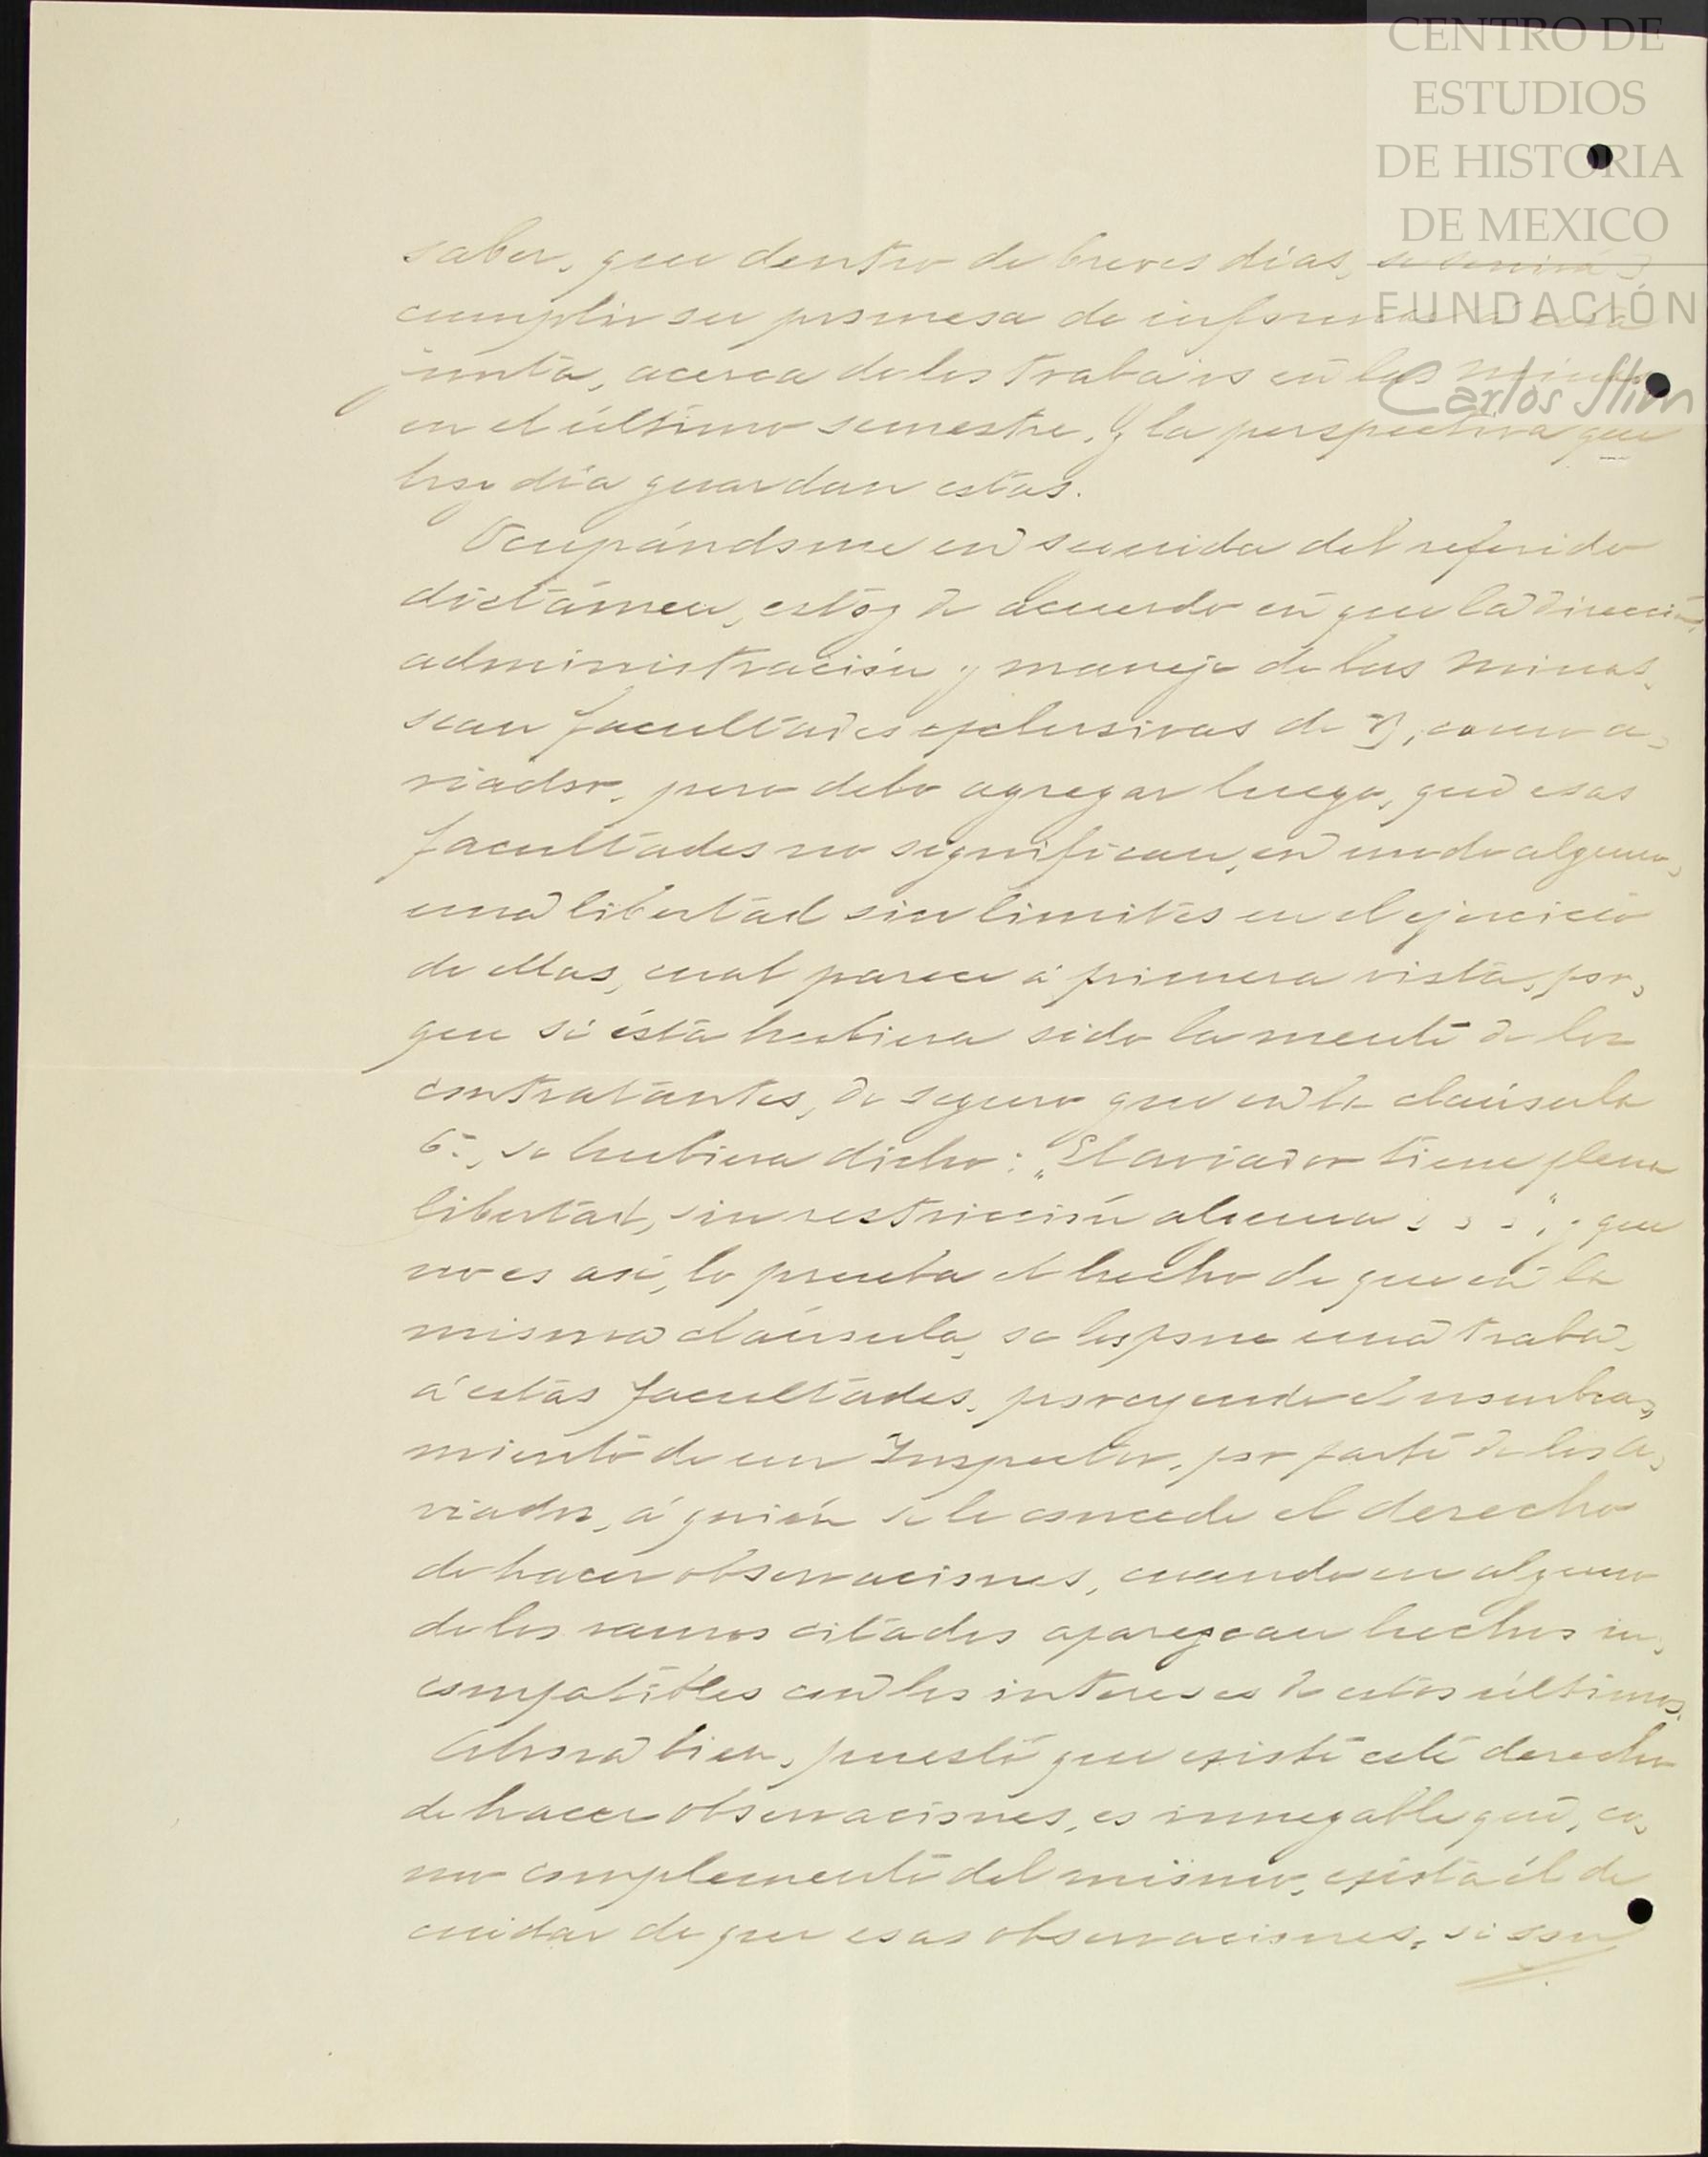 CENTRO DE
ESTUDIOS
DE HISTORIA
DE MEXICO
FUNDACIÓN
Carlos Slim
saber, que dentro de breves días, se servirá
cumplir su promesa de informar á esta
junta, acerca de los trabajos en las minas
en el último semestre, y la perspectiva que
hoy día guardan estas.
Ocupándome en seguida del referido
dictámen, estoy de acuerdo en que la direccion,
administración y manejo de las minas,
sean facultades exclusivas de V, como a,
viador, pero debo agregar luego, que esas
facultades no significan, en modo alguno,
una libertad sin limites en el ejercicio
de ellas, cual parece á primera vista, por,
que si ésta hubiera sido la mente de los
contratantes, de seguro que en la claúsula
6ª, se hubiera dicho: "El aviador tiene plena
libertad, sin restricción alguna . . . ", y que
no es así, lo prueba el hecho de que en la
misma claúsula, se les pone una traba,
á estas facultades, proveyendo el nombra,
miento de un Inspector, por parte de los a,
viados, á quién se le concede el derecho
de hacer observaciones, cuando en alguno
de los ramos citados aparezcan hechos in,
compatibles con los intereses de estos últimos.
Ahora bien, puesto que existe este derecho
de hacer observaciones, es innegable que, co,
mo complemento del mismo, exista él de
cuidar de que esas observaciones, si son